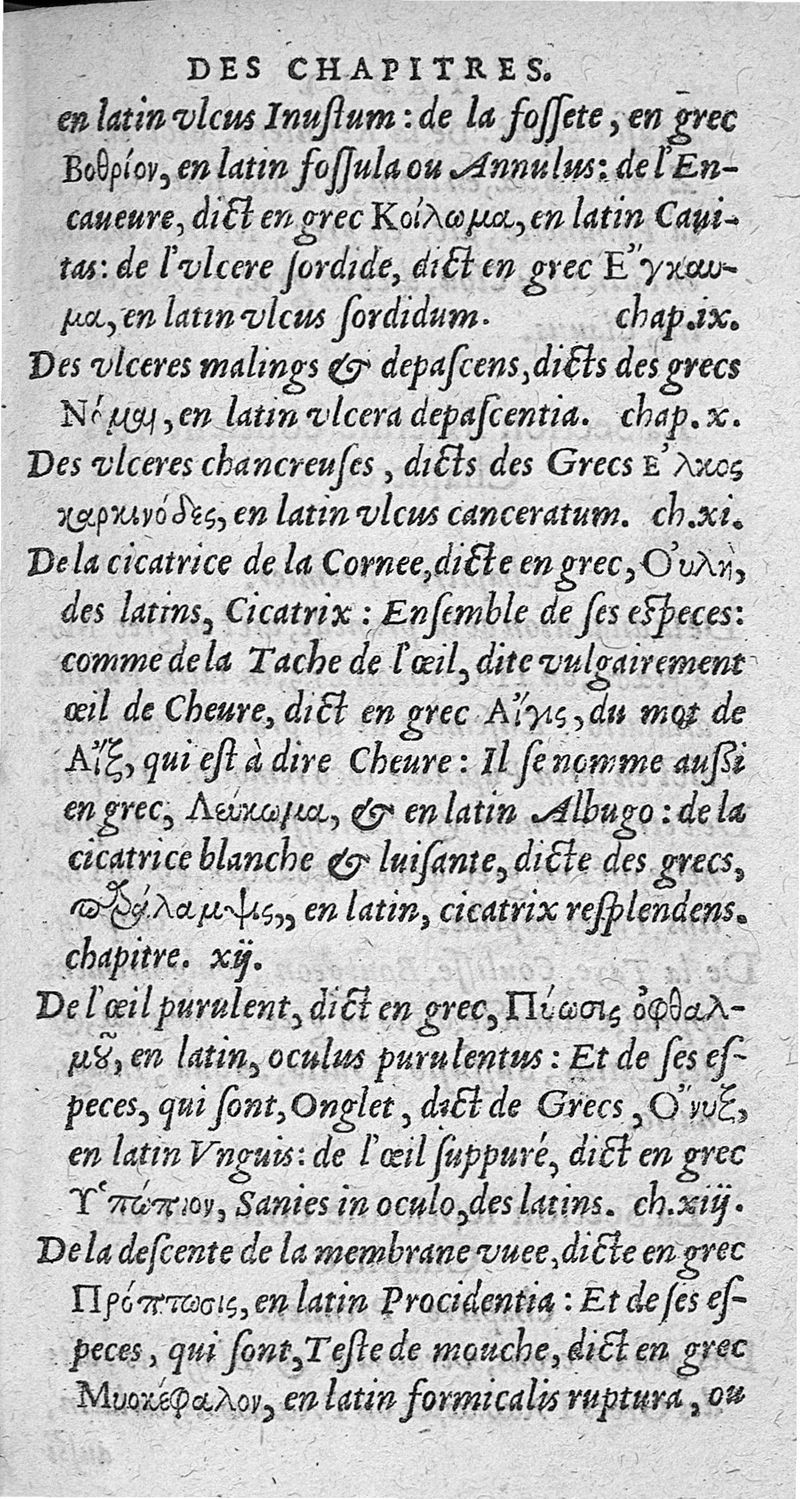 DES CHAPITRES.
en latin vlcus Inuſtum : de la foſſete, en grec
Βοθρίον, en latin foſſula ou Annulus: de l'En-
caueure, dict en grec Κοίλωμα, en latin Caui-
tas: de l'vlcere ſordide, dict en grec Ἔγκαυ-
μα, en latin vlcus ſordidum. chap.ix.
Des vlceres malings & depaſcens, dicts des grecs
Νόμαι, en latin vlcera depaſcentia. chap. x.
Des vlceres chancreuſes, dicts des Grecs Ἕλκος
καρκινόδες, en latin vlcus canceratum. ch.xi.
De la cicatrice de la Cornee, dicte en grec, Οὐλὴ,
des latins, Cicatrix : Enſemble de ſes eſpeces:
comme de la Tache de l'œil, dite vulgairement
œil de Cheure, dict en grec Αἴγις, du mot de
Αἴξ, qui eſt à dire Cheure : Il ſe nomme auſſi
en grec, Λεύκωμα, & en latin Albugo : de la
cicatrice blanche & luiſante, dicte des grecs,
en latin, cicatrix reſplendens.
chapitre. xij.
De l'œil purulent, dict en grec, Πύωσις ὀφθαλ-
μοῦ, en latin, oculus purulentus : Et de ſes eſ-
peces, qui ſont, Onglet, dict de Grecs, Ὄνυξ,
en latin Vnguis: de l'œil ſuppuré, dict en grec
Ὑπώπιον, Sanies in oculo, des latins. ch.xiij.
De la deſcente de la membrane vuee, dicte en grec
Πρόπτωσις, en latin Procidentia : Et de ſes eſ-
peces, qui ſont, Teſte de mouche, dict en grec
Μυοκέφαλον, en latin formicalis ruptura, ou